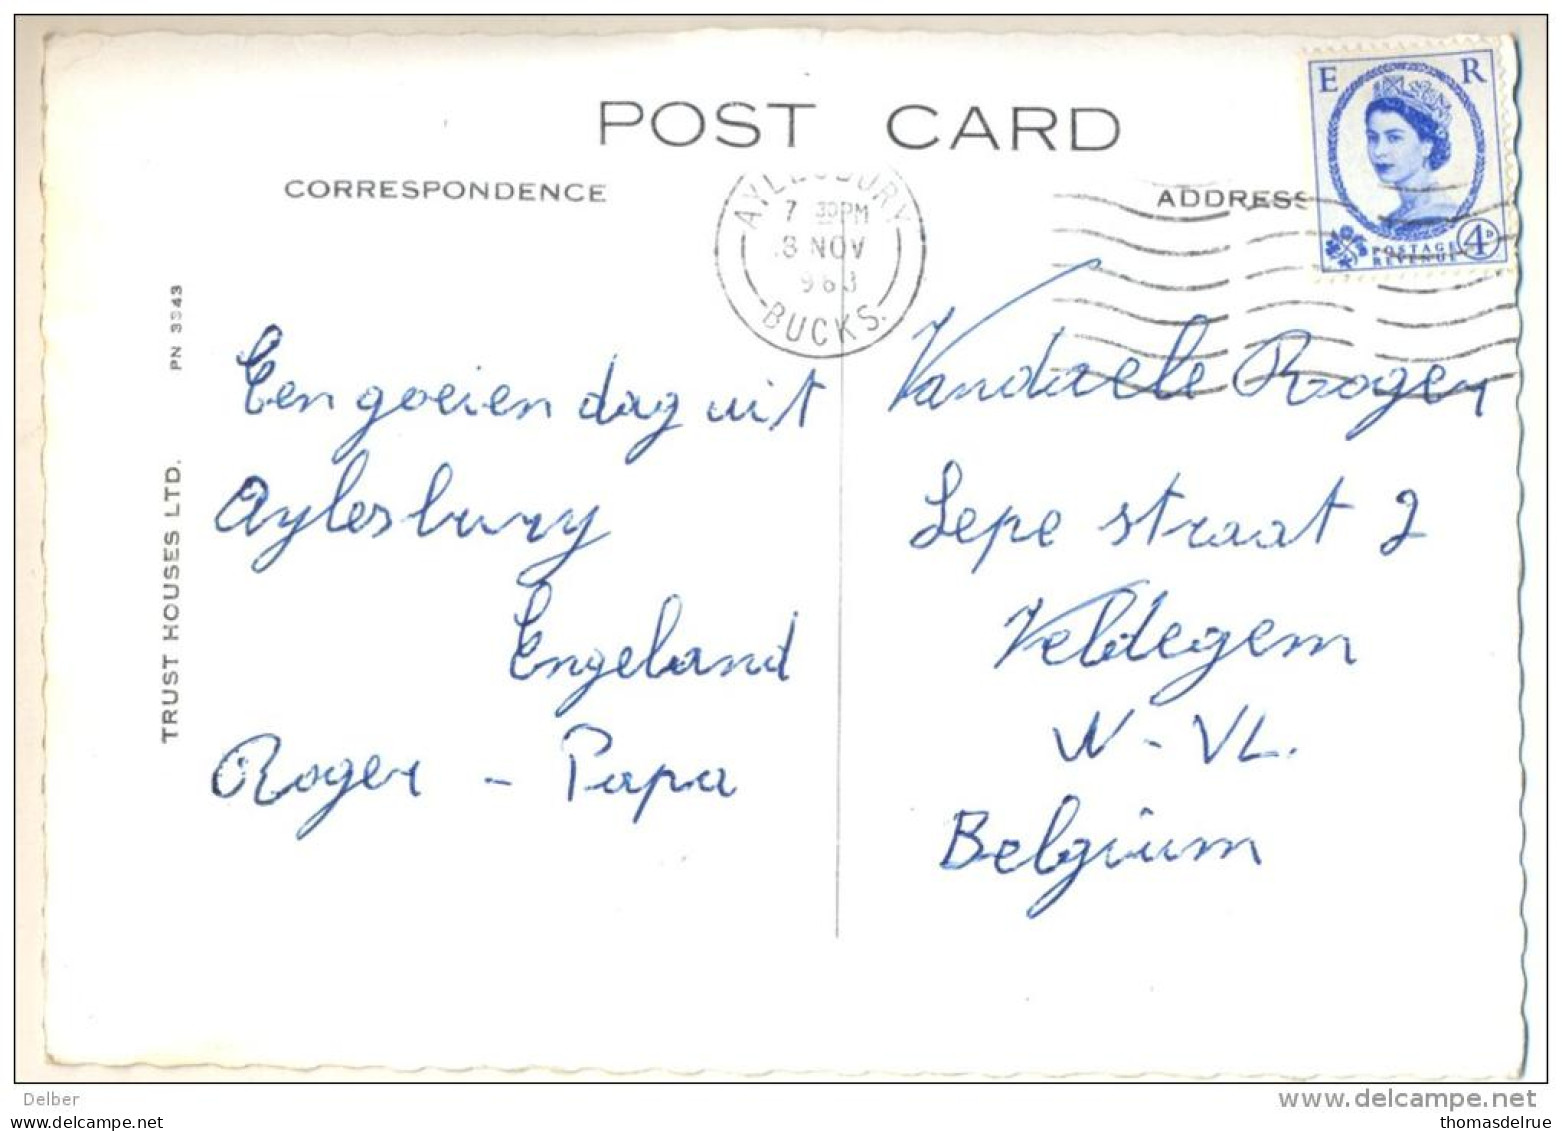 POST CARD
CORRESPONDENCE
ADDRESS
E R
POSTAGE
REVENUE
4D
AYLESBURY
7 30PM
8 NOV
1963
BUCKS.
PN 3943
TRUST HOUSES LTD.
Een goeien dag uit
Aylesbury
Engeland
Roger - Papa
Vandaele Roger
Lepe straat 2
Veldegem
W-VL.
Belgium
Delber
www.delcampe.net
© Copyright
thomasdelrue